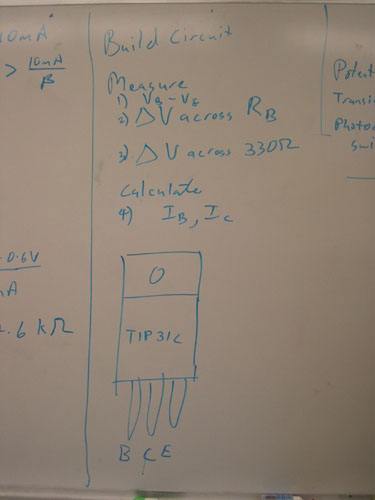 10mA
> 10mA
β
- 0.6V
mA
.6 kΩ
Build Circuit
Measure
1) VB - VE
2) ΔV across RB
3) ΔV across 330Ω
Calculate
4) IB, IC
TIP31C
B C E
Potent
Transi
Photo
swi